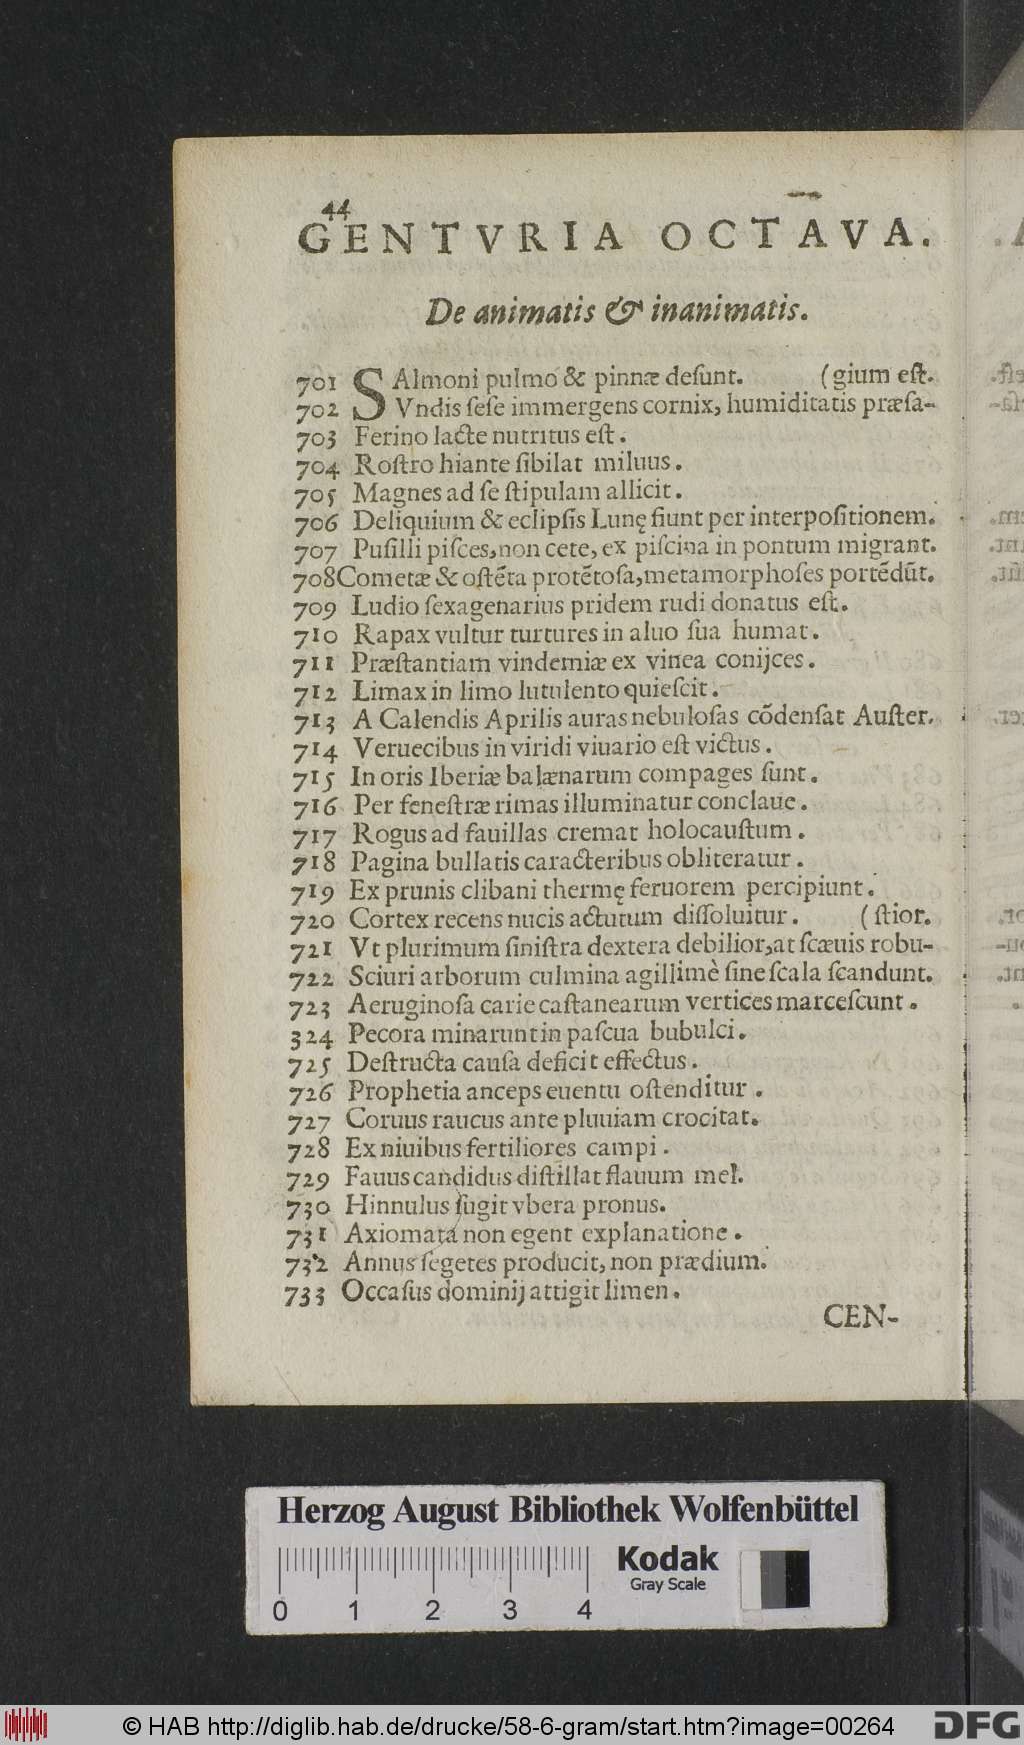 44
GENTVRIA OCTAVA.
De animatis & inanimatis.
701 SAlmoni pulmo & pinnæ deſunt. (gium eſt.
702 Vndis ſeſe immergens cornix, humiditatis præſa-
703 Ferino lacte nutritus eſt.
704 Roſtro hiante ſibilat miluus.
705 Magnes ad ſe ſtipulam allicit.
706 Deliquium & eclipſis Lunę fiunt per interpoſitionem.
707 Puſilli piſces, non cete, ex piſcina in pontum migrant.
708 Cometæ & oſtẽta protẽtoſa, metamorphoſes portẽdũt.
709 Ludio ſexagenarius pridem rudi donatus eſt.
710 Rapax vultur turtures in aluo ſua humat.
711 Præſtantiam vindemiæ ex vinea conijces.
712 Limax in limo lutulento quieſcit.
713 A Calendis Aprilis auras nebuloſas cõdenſat Auſter.
714 Veruecibus in viridi viuario eſt victus.
715 In oris Iberiæ balænarum compages ſunt.
716 Per feneſtræ rimas illuminatur conclaue.
717 Rogus ad fauillas cremat holocauſtum.
718 Pagina bullatis caracteribus obliteratur.
719 Ex prunis clibani thermę feruorem percipiunt.
720 Cortex recens nucis actutum diſſoluitur. (ſtior.
721 Vt plurimum ſiniſtra dextera debilior, at ſcæuis robu-
722 Sciuri arborum culmina agillimè ſine ſcala ſcandunt.
723 Aeruginoſa carie caſtanearum vertices marceſcunt.
324 Pecora minarunt in paſcua bubulci.
725 Deſtructa cauſa deficit effectus.
726 Prophetia anceps euentu oſtenditur.
727 Coruus raucus ante pluuiam crocitat.
728 Ex niuibus fertiliores campi.
729 Fauus candidus diſtillat flauum mel.
730 Hinnulus ſugit vbera pronus.
731 Axiomata non egent explanatione.
732 Annus ſegetes producit, non prædium.
733 Occaſus dominij attigit limen.
CEN-
Herzog August Bibliothek Wolfenbüttel
Kodak
Gray Scale
0 1 2 3 4
© HAB http://diglib.hab.de/drucke/58-6-gram/start.htm?image=00264
DFG